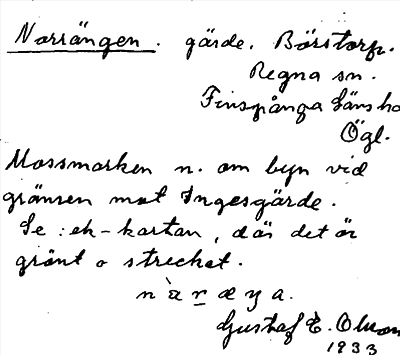 Norrängen. gärde. Börstorp.
Regna sn.
Finspånga läns hd
Ögl.
Mossmarken n. om byn vid
gränsen mot Ingesgärde.
Se : ek-kartan, där det är
grönt o strecket.
Gustaf E. Olsson
1933